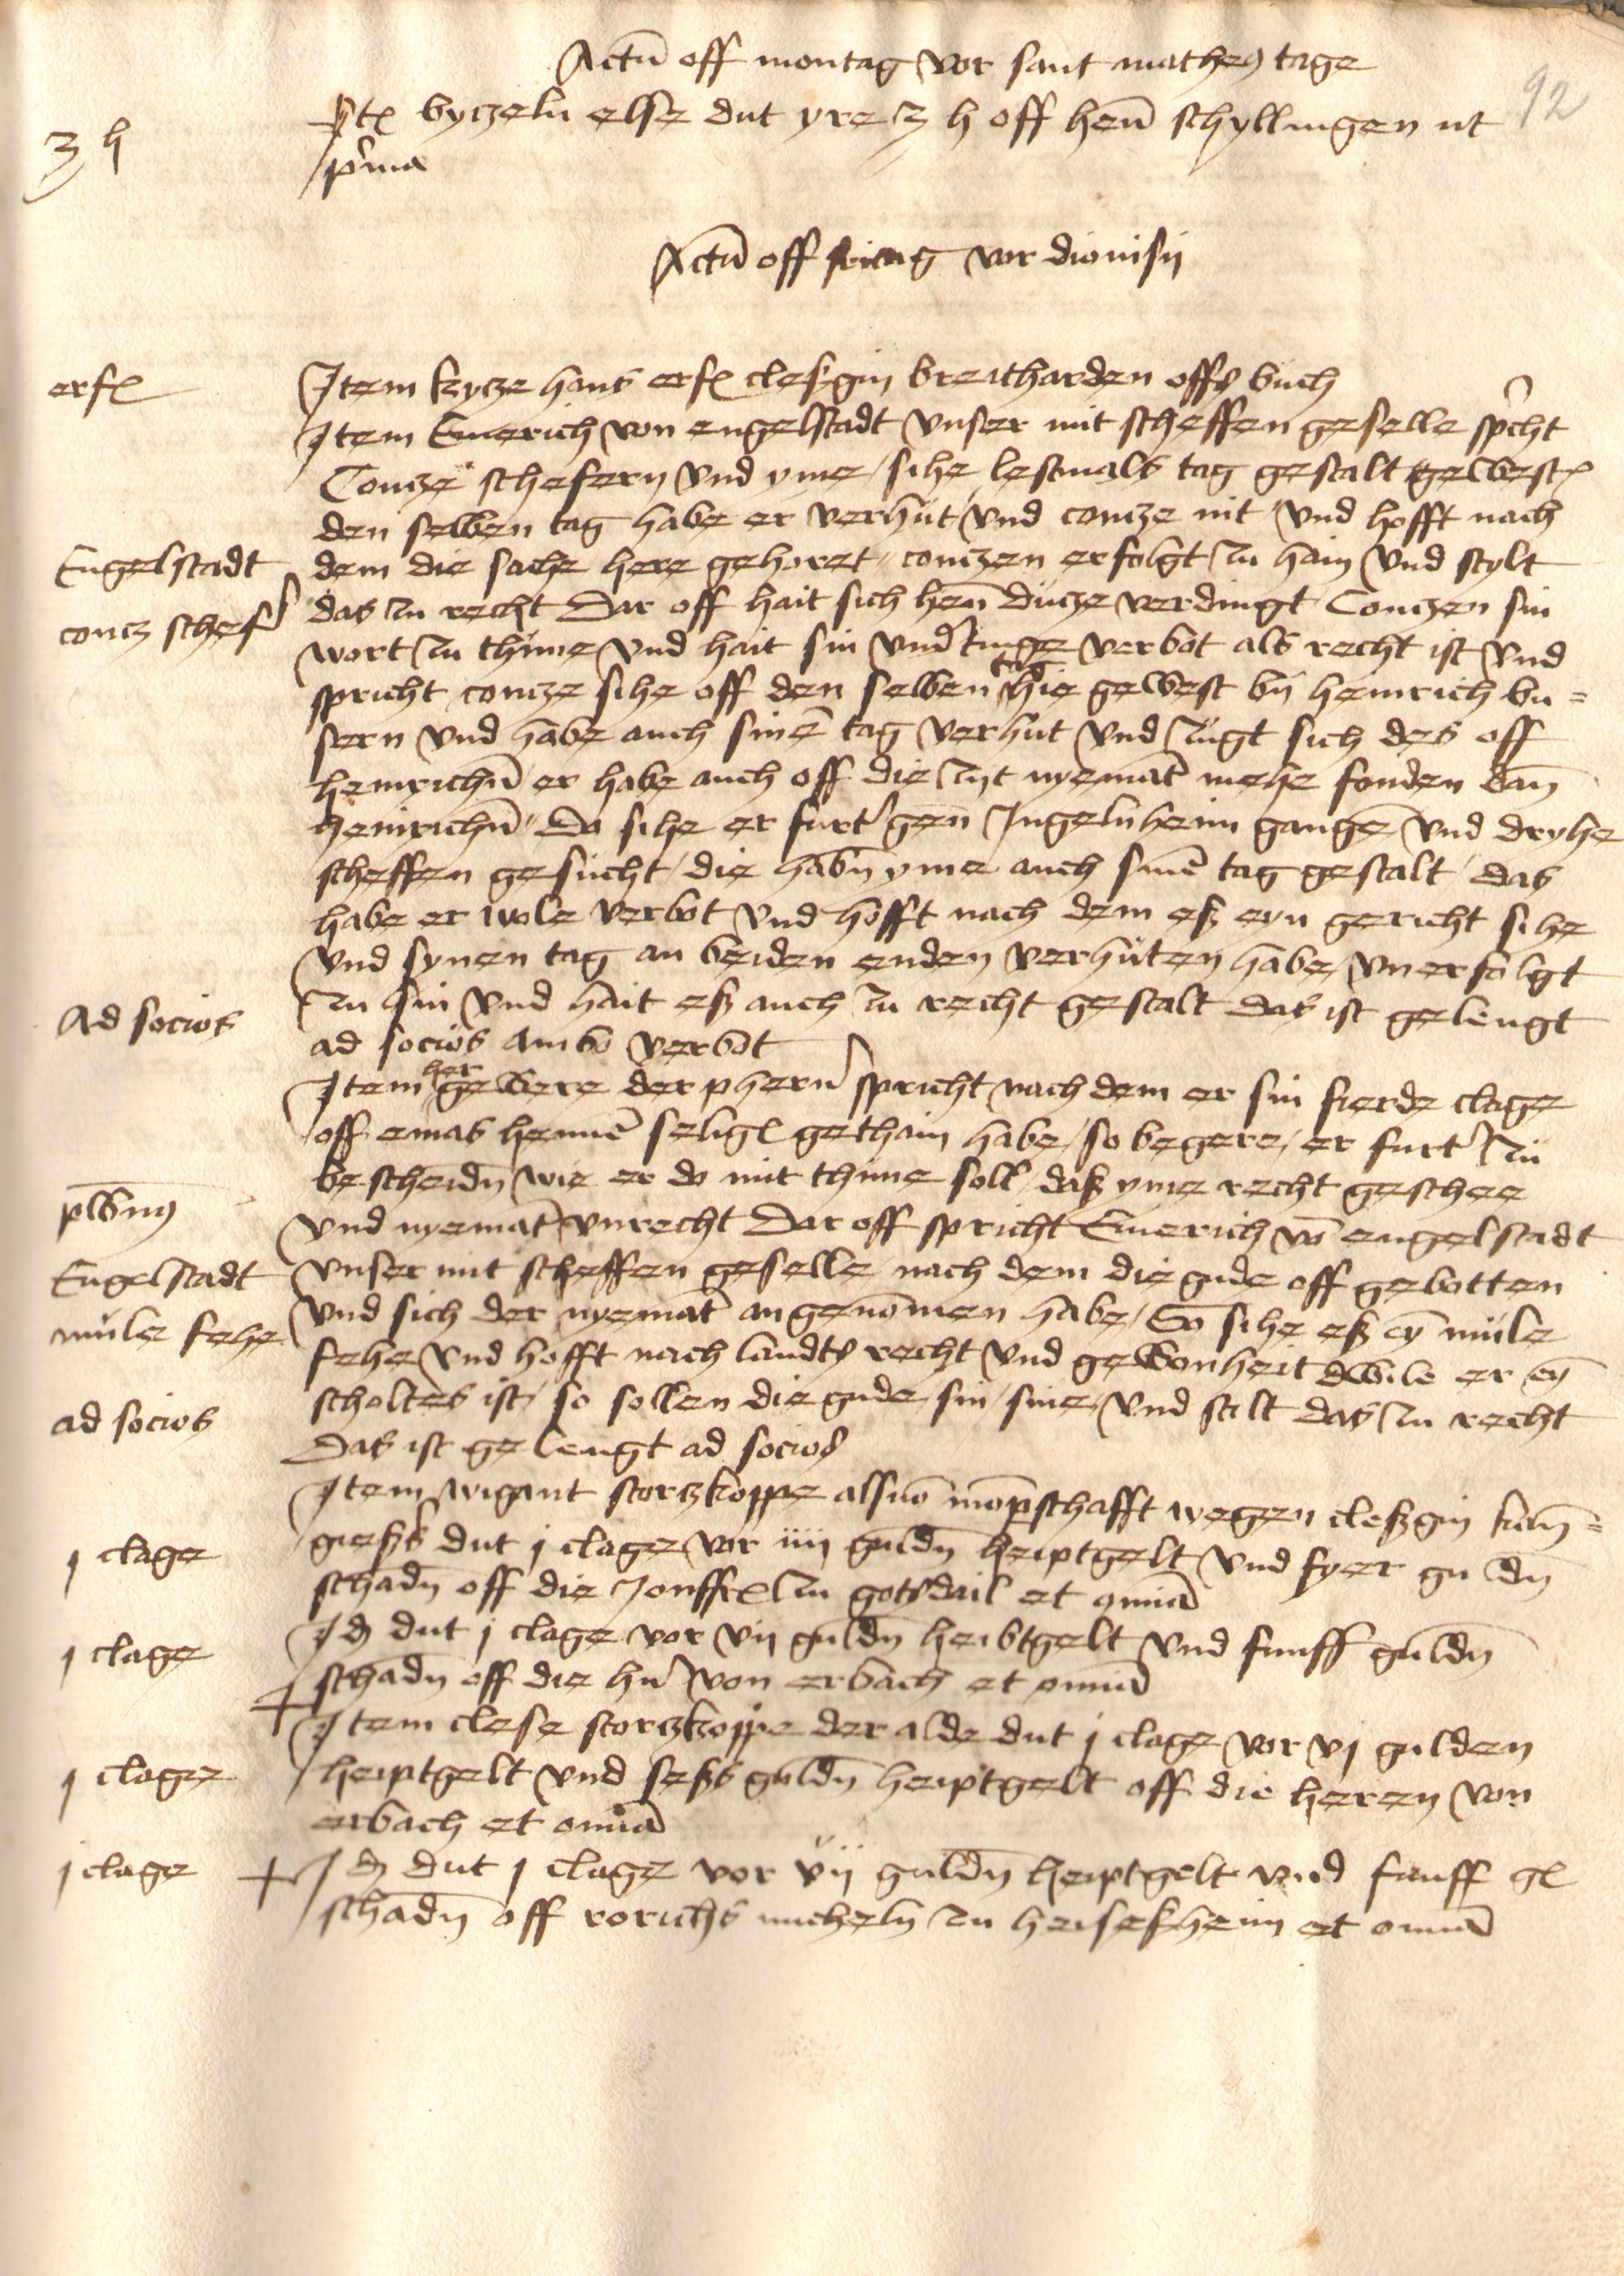 Actu off montag vor sant mathes tage
92
3 h
It bytzeln else dut yre 3 h off hen schyllingen ut
prima
Actu off fritag vor dionisij
erf
Item kytze hans erf cleßgin breitharden offs buch
Item Emerich von engelstadt unser mit scheffen geselle spricht
Contze schefern und yme sihe lestmals tag gestalt gewest
den selben tag habe er verhut und contze nit und hofft nach
Engelstadt
dem die sache here gehoret contzen erfolgt zu hain und stylt
contz schef
das zu recht Dar off hait sich hen dutze verdingt Contzen sin
wort zu thune und hait sin underdinge verbot als recht ist und
spricht contze sihe off den selben tag hie gewest by heinrich bu=
sern und habe auch sine tag verhut und zugt sich des off
heinrichn er habe auch off die zijt nyemat mehe fonden dan
heinrichn Da sihe er furt gen Ingelnheim gange und dryhe
scheffen gesucht die habn yme auch sine tag gestalt das
habe er wole verbot und hofft nach dem eß eyn gericht sihe
und synen tag an beiden enden verhuten habe unerfolgt
Ad socios
zu sin und hait eß auch zu recht gestalt das ist gelengt
ad socios ambo verbot
Item her gewere der phern spricht nach dem er sin fierde clage
off emas henne selig gethain habe so begere er furt zu
bescheidn wie er do mit thune soll daß yme recht geschee
plbnus
und nyemat unrecht Dar off spricht Emerich vo engelstadt
Engelstadt
unser mit scheffen geselle nach dem die gude off gebotten
mule fehe
und sich der nyemat angenomen habe So sihe eß ey mule
fehe und hofft nach landts recht und gewonheit dwile er ey
scholtes ist so sollen die gude sin sine und stilt das zu recht
ad socios
Das ist gelengt ad socios
Item wigant stortzkoppe als von momperschafft wegen cleßgin kan=
j clage
gießs dut j clage vor iiij guldn heiptgelt und fyer guldn
schadn off die Jonff zu gotsdail et omnia
j clage
Id dut j clage vor vij guldn heibtgelt und funff guldn
schadn off die hn von erbach et omnia
Item clese stortzkoppe der alde dut j clage vor vj gulden
j clage
heiptgelt und seßs guldn heiptgelt off die heren von
erbach et omnia
j clage
Id dut j clage vor vij guldn heiptgelt und funff gl
schadn off rorichs micheln zu heisesheim et omnia